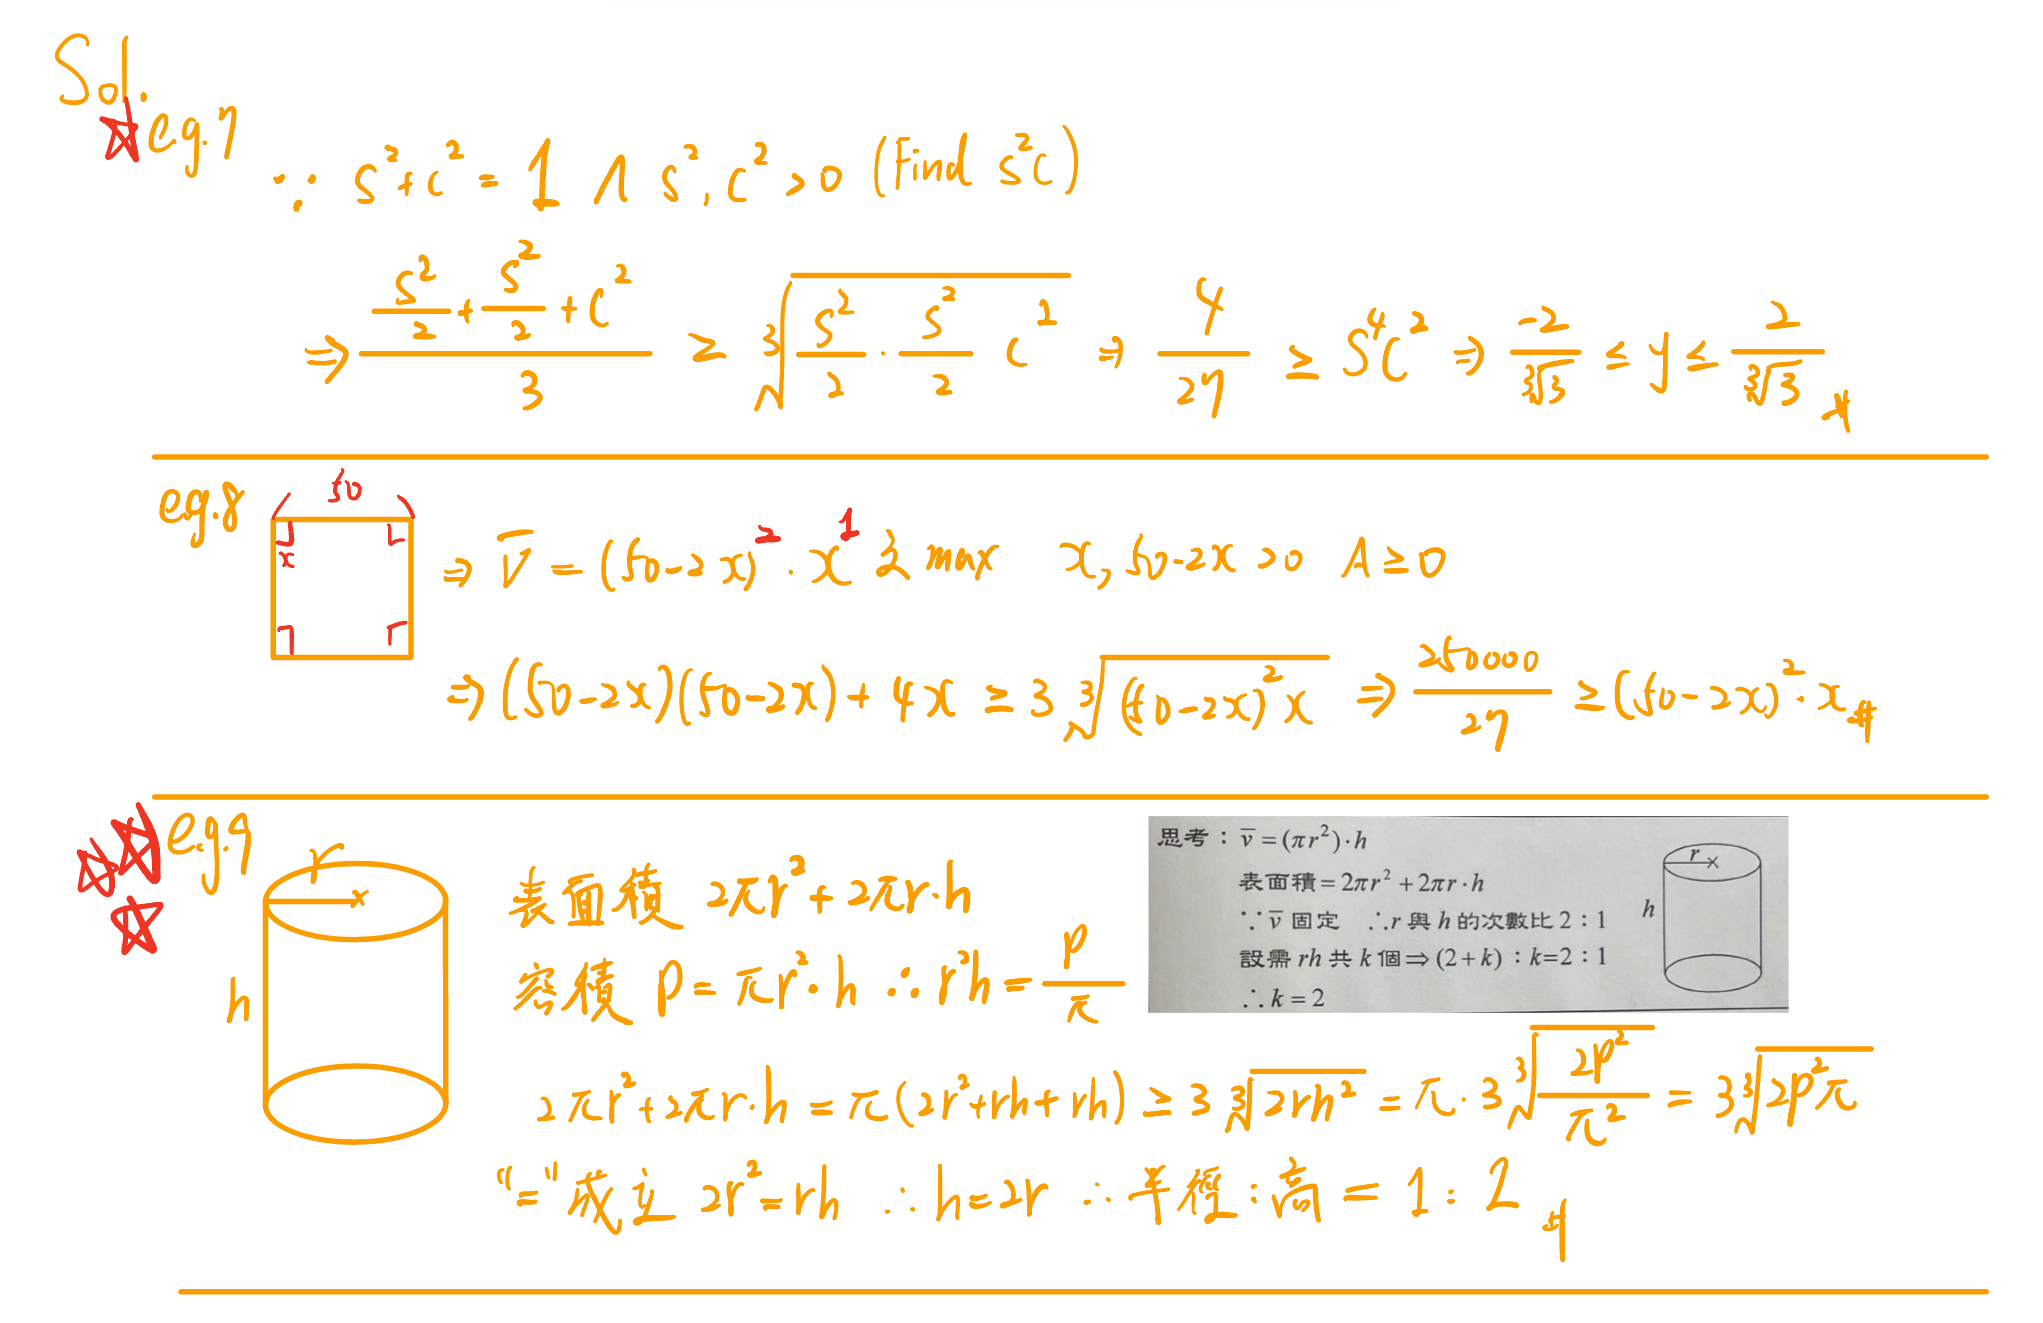 Sol.
e.g.7
∵ s²+c² = 1 ∧ s², c² > 0 (Find s²c)
⇒ (s²/2 + s²/2 + c²)/3 ≥ ∛(s²/2 · s²/2 c²) ⇒ 4/27 ≥ s⁴c² ⇒ -2/(3√3) ≤ y ≤ 2/(3√3) #
e.g.8
50
x
⇒ V̄ = (50-2x)² · x¹ 求 max x, 50-2x > 0 A ≥ 0
⇒ (50-2x)(50-2x) + 4x ≥ 3 ∛((50-2x)²x) ⇒ 250000/27 ≥ (50-2x)² · x #
e.g.9
r
h
表面積 2πr² + 2πr·h
容積 P = πr²·h ∴ r²h = P/π
思考：v̄=(πr²)·h
表面積=2πr²+2πr·h
∵v̄固定 ∴r與h的次數比2：1
設需rh共k個⇒(2+k)：k=2：1
∴k=2
r
h
2πr²+2πr·h = π(2r²+rh+rh) ≥ 3 ∛(2rh²) = π·3∛(2P²/π²) = 3∛(2P²π)
"="成立 2r²=rh ∴h=2r ∴半徑:高 = 1:2 #